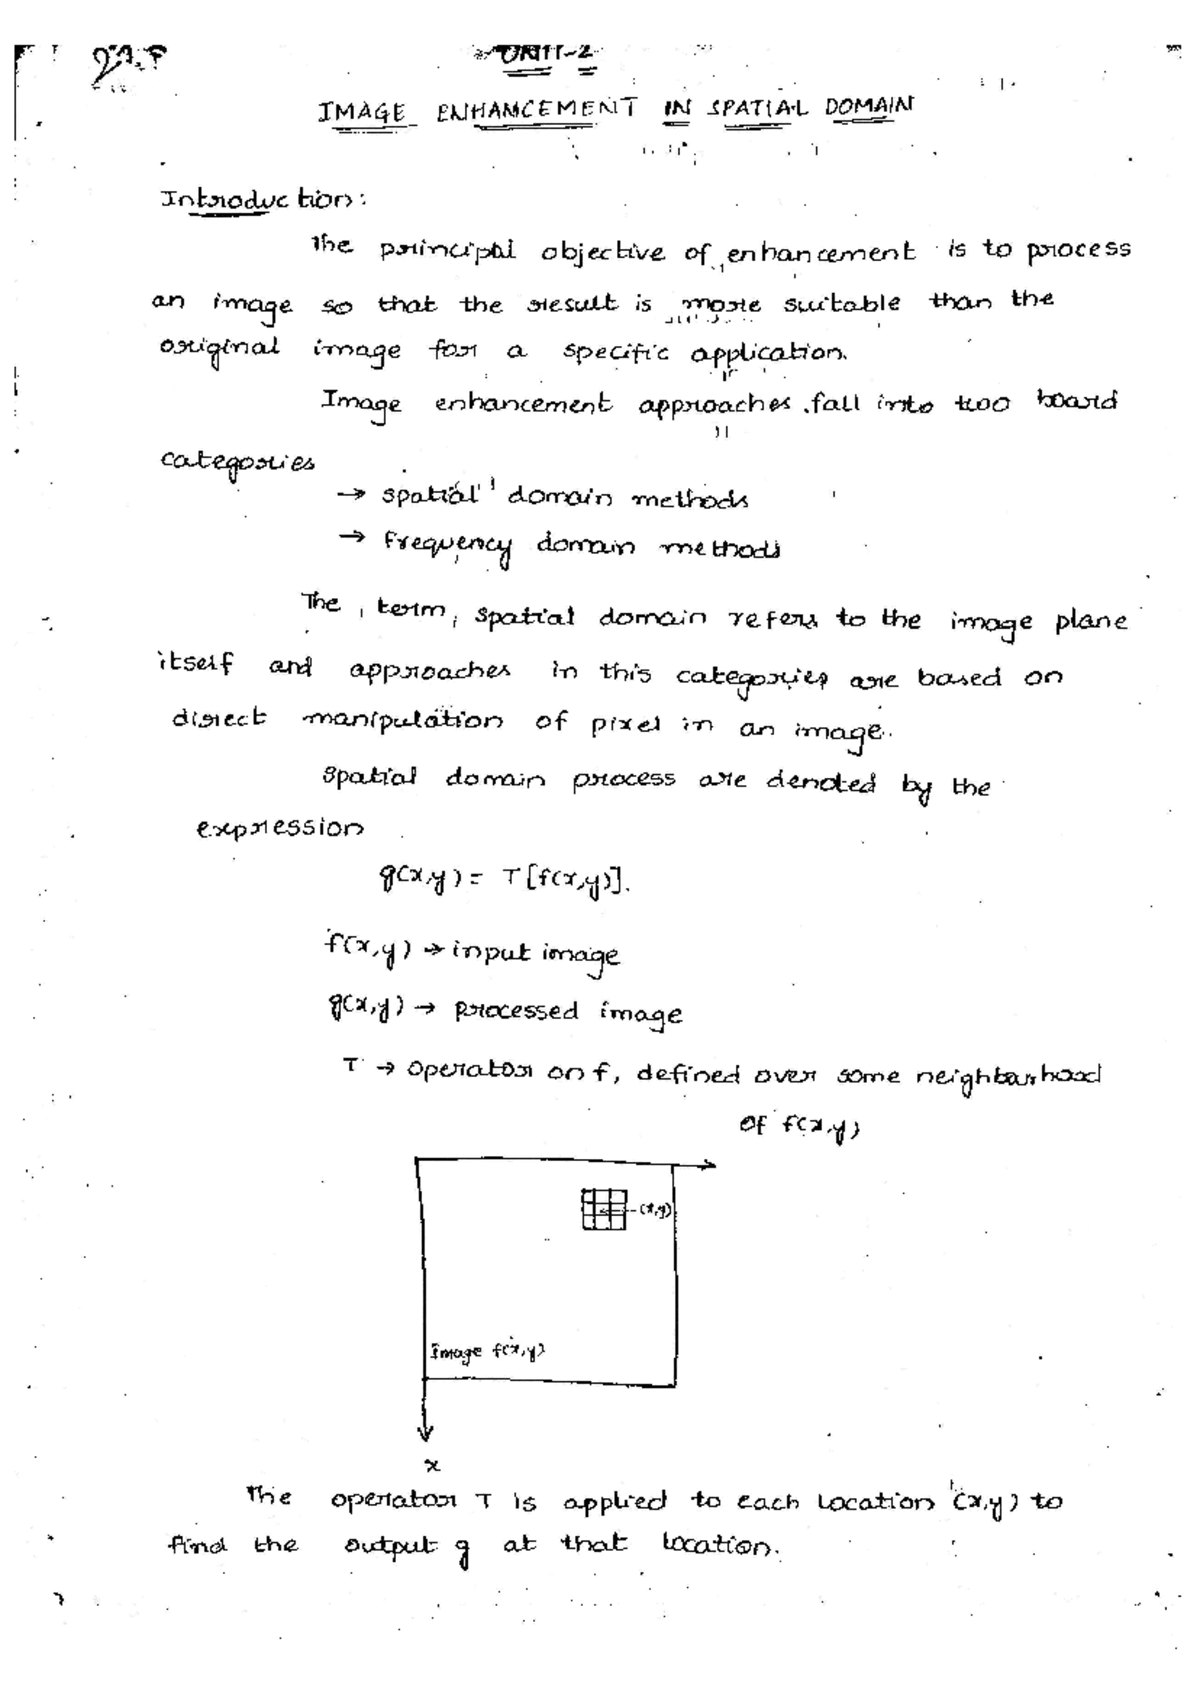 UNIT-2
IMAGE ENHANCEMENT IN SPATIAL DOMAIN
Introduction:
The principal objective of enhancement is to process
an image so that the result is more suitable than the
original image for a specific application.
Image enhancement approaches fall into two board
categories
→ spatial domain methods
→ frequency domain methods
The term, spatial domain refers to the image plane
itself and approaches in this categories are based on
direct manipulation of pixel in an image.
Spatial domain process are denoted by the
expression
g(x,y) = T[f(x,y)].
f(x,y) → input image
g(x,y) → processed image
T → operator on f, defined over some neighbourhood
of f(x,y)
(x,y)
Image f(x,y)
x
The operator T is applied to each location (x,y) to
find the output g at that location.